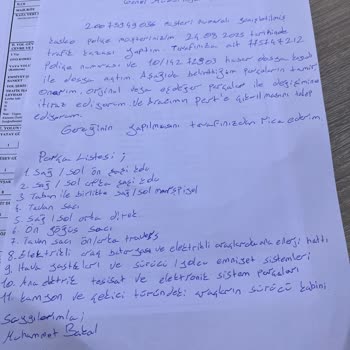 Genel Müdürlüğü
kasko poliçe müşterinizim 24.09.2025 tarihinde
trafik kazası yaptım. Tarafınıza ait
Poliçe numarası ve hasar dosyası
ile dosya açtım. Aşağıda belirttiğim parçaların tamir
onarım, orjinal veya eşdeğer parçalar ile değişimine
itiraz ediyorum ve aracımın pert'e çıkarılmasını talep
ediyorum.
Gereğinin yapılmasını tarafınızdan rica ederim
Parça Listesi;
1. Sağ / Sol ön şasi kolu
2. Sağ / Sol arka şasi kolu
3. Taban ile birlikte sağ/sol marşpiyel
4. Tavan sacı
5. Sağ / Sol orta direk
6. Ön göğüs sacı
7. Tavan sacı ön/arka travers
8. Elektrikli araç bataryası ve elektrikli araçlarda ana enerji hattı
9. Hava yastıkları ve sürücü / yolcu emniyet sistemleri
10. Ana elektrik tesisat ve elektronik sistem parçaları
11. Kamyon ve çekici türündeki araçların sürücü kabini
Saygılarımla;
Muhammet